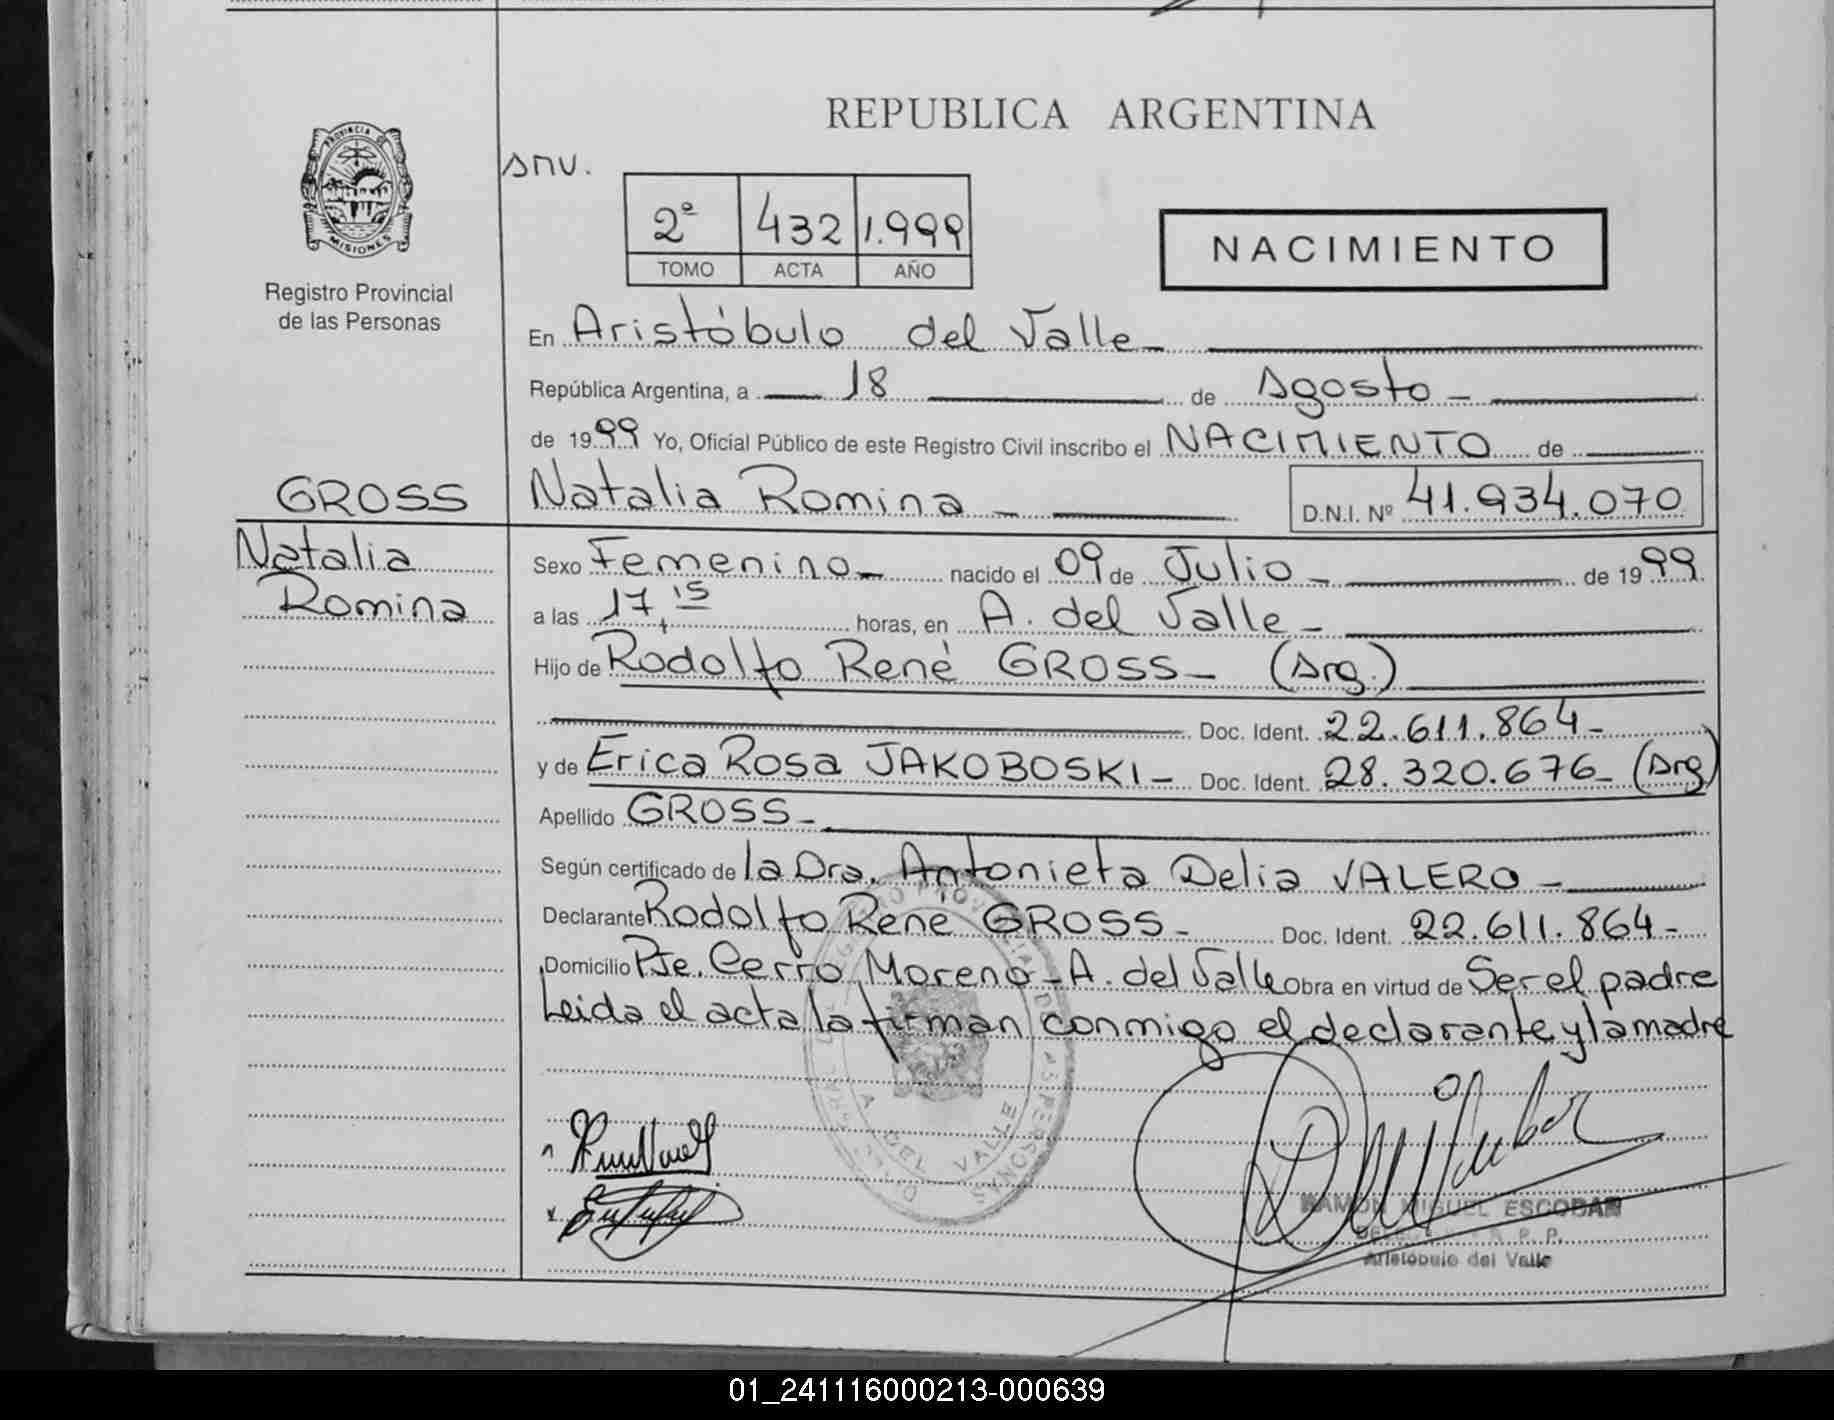 REPUBLICA ARGENTINA
PROVINCIA DE
MISIONES
Registro Provincial
de las Personas
snv.
2º 432 1.999
TOMO ACTA AÑO
NACIMIENTO
En Aristóbulo del Valle
República Argentina, a 18 de Agosto
de 1999 Yo, Oficial Público de este Registro Civil inscribo el NACIMIENTO de
GROSS
Natalia Romina
D.N.I. Nº 41.934.070
Natalia
Romina
Sexo Femenino nacido el 09 de Julio de 1999
a las 17,15 horas, en A. del Valle
Hijo de Rodolfo René GROSS (Arg.)
Doc. Ident. 22.611.864
y de Erica Rosa JAKOBOSKI Doc. Ident. 28.320.676 (Arg)
Apellido GROSS
Según certificado de la Dra. Antonieta Delia VALERO
Declarante Rodolfo René GROSS Doc. Ident. 22.611.864
Domicilio Pje. Cerro Moreno - A. del Valle Obra en virtud de Ser el padre
Leida el acta la firman conmigo el declarante y la madre
A. DEL VALLE
RAMON MIGUEL ESCOBAR
R. P. P.
Aristobulo del Valle
01_241116000213-000639